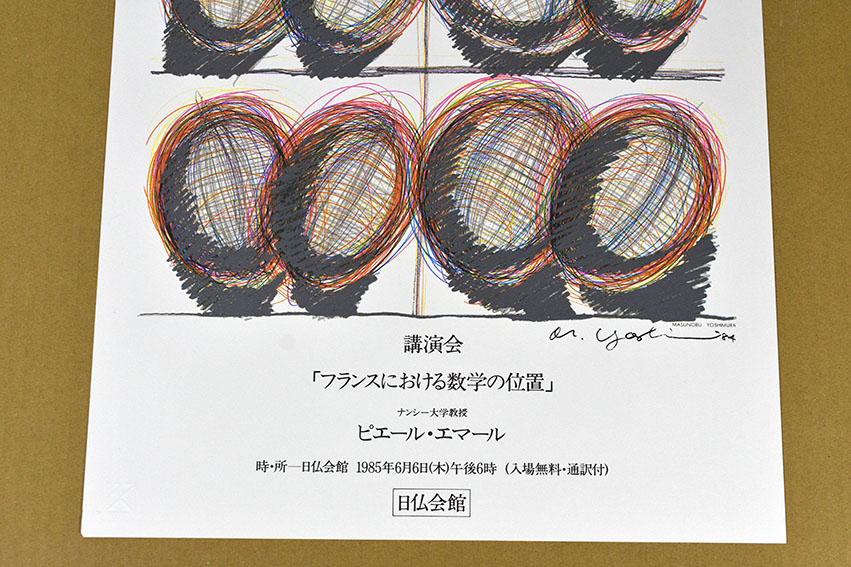 MASUNOBU YOSHIMURA
M. Yoshi '84
講演会
「フランスにおける数学の位置」
ナンシー大学教授
ピエール・エマール
時・所―日仏会館 1985年6月6日(木)午後6時 (入場無料・通訳付)
日仏会館